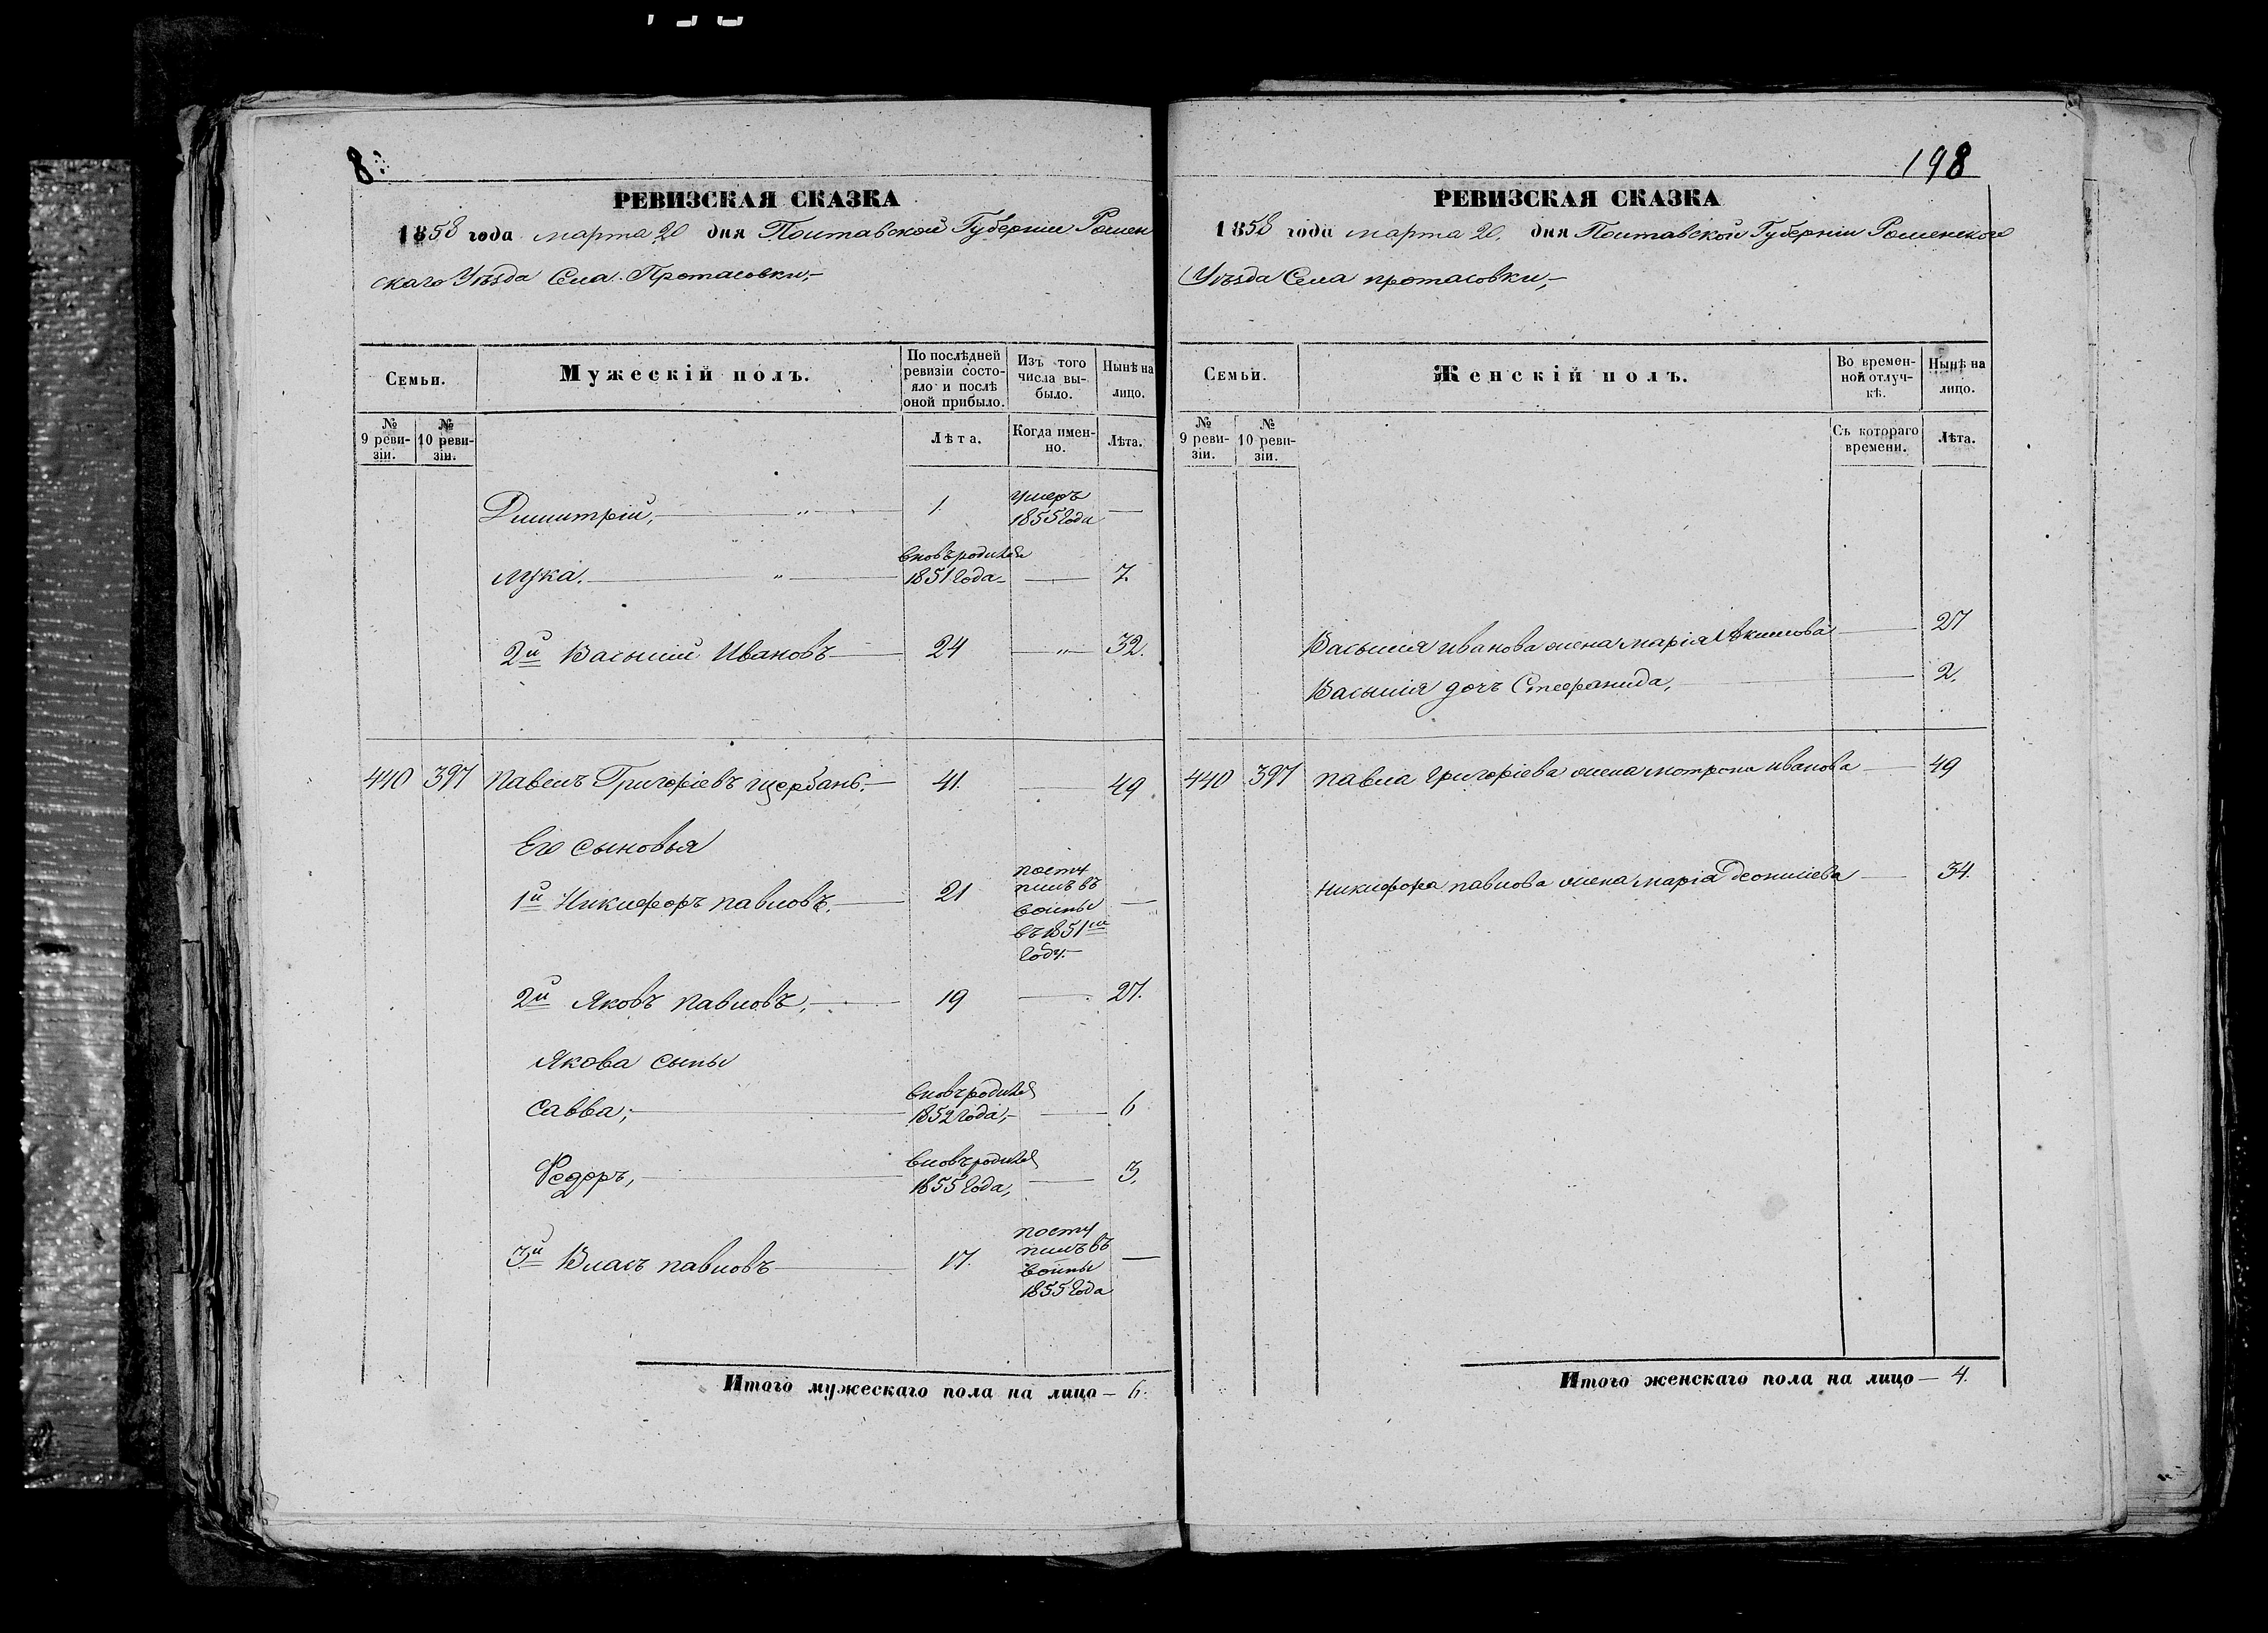 8
РЕВИЗСКАЯ СКАЗКА
1858 года марта 20 дня Полтавской Губерніи Ромен
скаго Уѣзда Села Протасовки,-
Семьи.
Мужескій полъ.
По послѣдней ревизіи состояло и послѣ оной прибыло.
Изъ того числа выбыло.
Нынѣ на лицо.
№ 9 ревизіи.
№ 10 ревизіи.
Лѣта.
Когда именно.
Лѣта.
Димитрій, — „ — 1. умеръ 1855 года —
Лука. — „ — вновь родился 1851 года — — 7.
2й Василий Ивановъ — 24 — „ — 32.
440 397 Павелъ Григоріевъ щербань. — 41. — 49
Его сыновья
1й Никифоръ павловъ. — 21 посту пилъ въ воины въ 1851м году. —
2й Яковъ павловъ, — 19 — 27.
Якова сыны
Савва; — вновь родился 1852 года, — — 6
Федоръ, — вновь родился 1855 года, — 3.
3й Власъ павловъ — 17. посту пилъ въ воины 1855 года —
Итого мужескаго пола на лицо — 6.
198
РЕВИЗСКАЯ СКАЗКА
1858 года марта 20, дня Полтавской Губерніи Роменского
Уѣзда Села протасовки,-
Семьи.
Женскій полъ.
Во временной отлучкѣ.
Нынѣ на лицо.
№ 9 ревизіи.
№ 10 ревизіи.
Съ котораго времени.
Лѣта.
Василия иванова жена марія Акимова — 27
Василия дочь Стефанида, — 2.
440 397 павла григоріева жена мотрона иванова — 49
никифора павлова жена марія Деонисіева — 34.
Итого женскаго пола на лицо — 4.